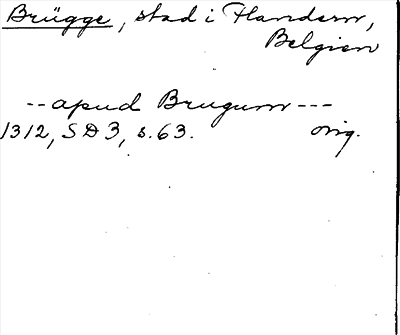 Brügge, stad i Flandern,
Belgien
-- apud Brugum ---
1312, SD3, s. 63. orig.